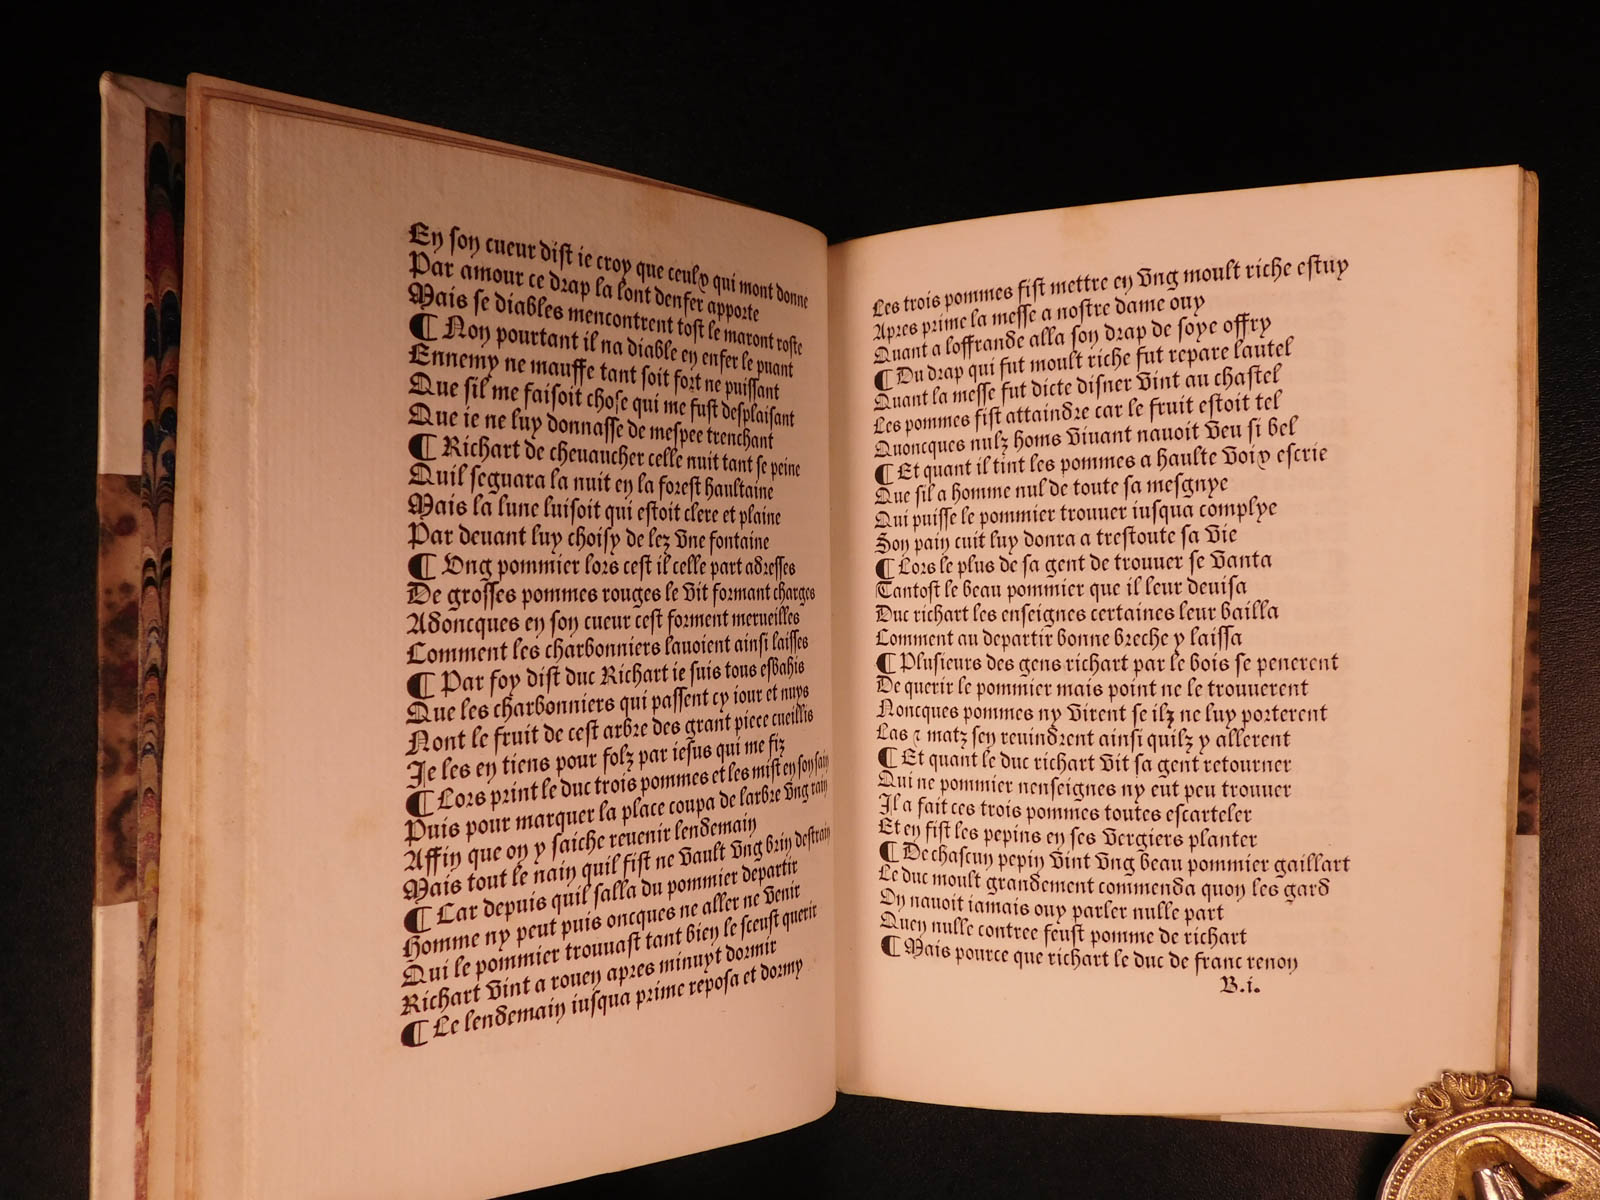 En son cueur dist ie croy que ceuly qui mont donne
Par amour ce drap la lont denfer apporte
Mais se diables mencontrent tost le maront roste
¶ Non pourtant il na diable en enfer le puant
Ennemy ne mauffe tant soit fort ne puissant
Que sil me faisoit chose qui me fust desplaisant
Que ie ne luy donnasse de mespee trenchant
¶ Richart de cheuaucher celle nuit tant se peine
Quil seguara la nuit en la forest haultaine
Mais la lune luisoit qui estoit clere et plaine
Par deuant luy choisy de lez vne fontaine
¶ Vng pommier lors cest il celle part adresses
De grosses pommes rouges le vit formant charges
Adoncques en son cueur cest forment merueilles
Comment les charbonniers lauoient ainsi laisses
¶ Par foy dist duc Richart ie suis tous esbahis
Que les charbonniers qui passent cy iour et nuys
Nont le fruit de cest arbre des grant piece cueillis
Je les en tiens pour folz par iesus qui me fiz
¶ Lors print le duc trois pommes et les mist en son sain
Puis pour marquer la place coupa de larbre vng rain
Affin que on y saiche reuenir lendemain
Mais tout le nain quil fist ne vault vng brin destrain
¶ Car depuis quil salla du pommier departir
Homme ny peut puis oncques ne aller ne venir
Qui le pommier trouuast tant bien le sceust querir
Richart vint a rouen apres minuyt dormir
¶ Le lendemain iusqua prime reposa et dormy
Les trois pommes fist mettre en vng moult riche estuy
Apres prime la messe a nostre dame ouy
Quant a loffrande alla son drap de soye offry
¶ Du drap qui fut moult riche fut repare lautel
Quant la messe fut dicte disner vint au chastel
Les pommes fist attaindre car le fruit estoit tel
Quoncques nulz homs viuant nauoit veu si bel
¶ Et quant il tint les pommes a haulte voix escrie
Que sil a homme nul de toute sa mesgnye
Qui puisse le pommier trouuer iusqua complye
Son pain cuit luy donra a trestoute sa vie
¶ Lors le plus de sa gent de trouuer se vanta
Tantost le beau pommier que il leur deuisa
Duc richart les enseignes certaines leur bailla
Comment au departir bonne breche y laissa
¶ Plusieurs des gens richart par le bois se penerent
De querir le pommier mais point ne le trouuerent
Noncques pommes ny virent se ilz ne luy porterent
Las ⁊ matz sen reuindrent ainsi quilz y allerent
¶ Et quant le duc richart vit sa gent retourner
Qui ne pommier nenseignes ny eut peu trouuer
Il a fait ces trois pommes toutes escarteler
Et en fist les pepins en ses vergiers planter
¶ De chascun pepin vint vng beau pommier gaillart
Le duc moult grandement commenda quon les gard
On nauoit iamais ouy parler nulle part
Quen nulle contree feust pomme de richart
¶ Mais pource que richart le duc de franc renon
B.i.